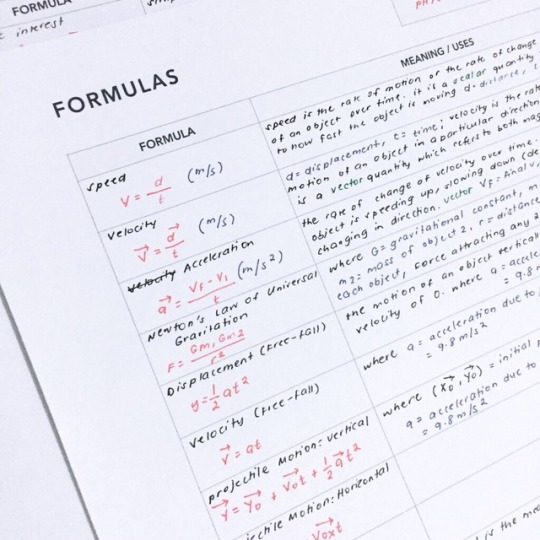 FORMULA
interest
FORMULAS
FORMULA
MEANING / USES
speed
V = d/t (m/s)
speed is the rate of motion or the rate of change
of an object over time. it is a scalar quantity
to how fast the object is moving d = distance,
velocity
V = d/t (m/s)
d = displacement, t = time; velocity is the rate
motion of an object in a particular direction
is a vector quantity which refers to both
velocity Acceleration
a = VF - V1/t (m/s2)
the rate of change of velocity over time.
object is speeding up, slowing down
changing in direction. vector VF = final
Newton's Law of Universal
Gravitation
F = Gm1 Gm2/r2
where G = gravitational constant,
m2 = mass of object 2, r = distance
each object, Force attracting any 2
Displacement (Free-Fall)
y = 1/2 at2
the motion of an object
velocity of 0. where a =
= 9.8
velocity (Free-Fall)
V = at
where a = acceleration due to
= 9.8 m/s2
projectile Motion: vertical
Y = Yo + Vot + 1/2 at2
where (Xo, Yo) = initial
a = acceleration due to
= 9.8 m/s2
Motion: Horizontal
Voxt
is the